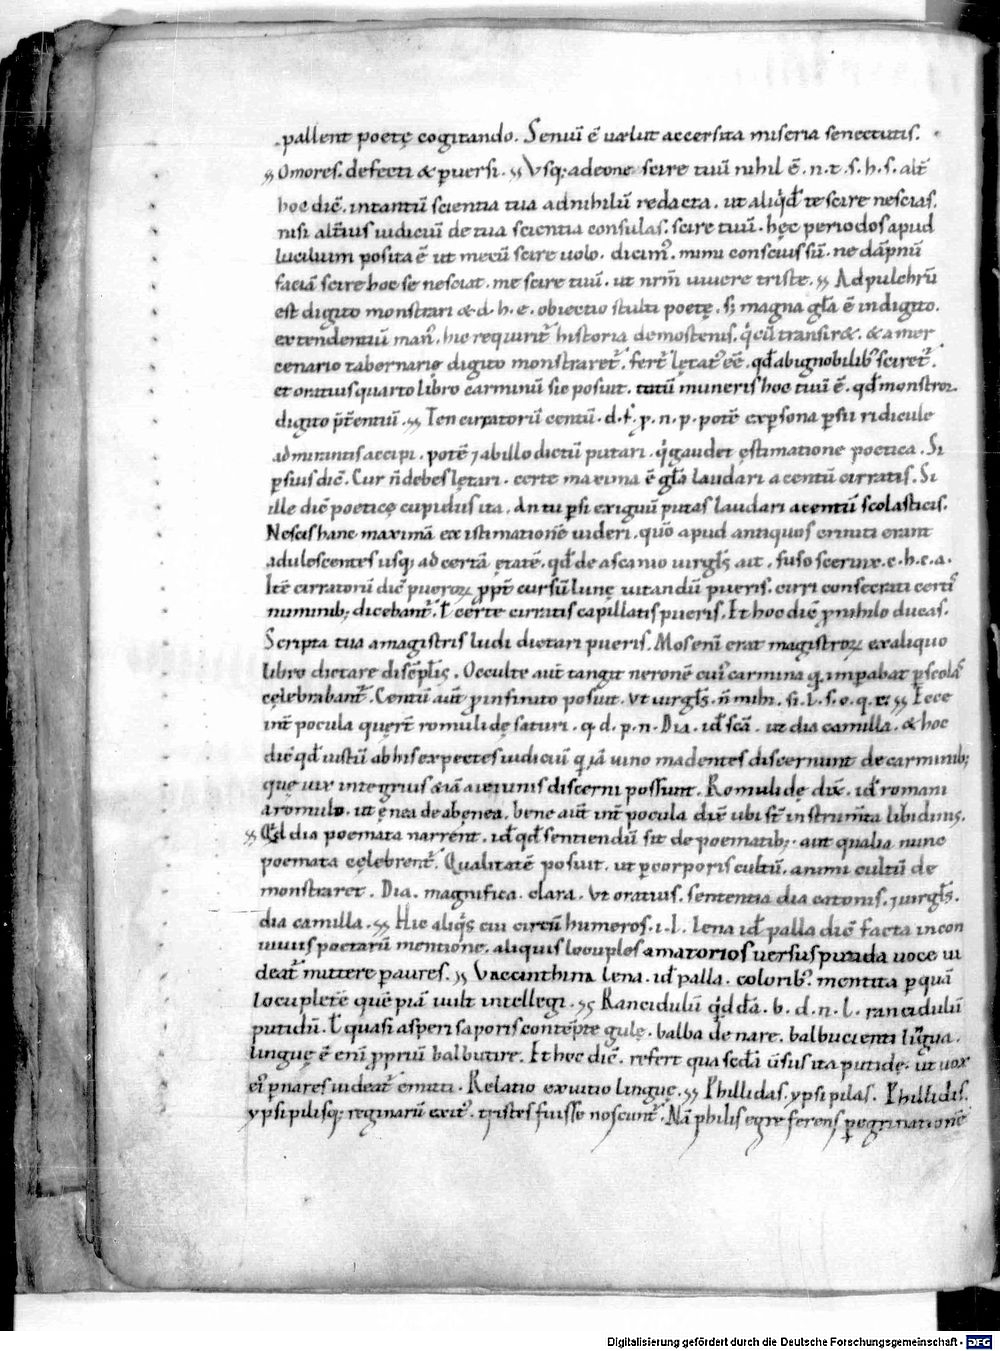 pallent poetę cogitando. Senuī ē uælut accersita miseria senectutis.
Omores. defecti & puersi. Vsq; adeone scire tuū nihil ē. n. t. s. h. s. alt̄
hoc dic̄. intantū scientia tua adnihilū redacta. ut aliq̇d te scire nescias.
nisi alt̄ius iudiciū de tua scientia consulas. scire tuū. hęc periodos apud
lucilium posita ē ut mecū scire uolo. dicim'. mihi conscius sū. ne dāpnū
faciā scire hoc se nesciat. me scire tuū. ut nrm̄ uiuere triste. Ad pulchrū
est digito monstrari & d. h. e. obiectio stulti poetę. s; magna gl̄a ē indigito.
extendentiū man'. hic requirit' historia demostenis. q̇ cū transir&. & a mer
cenario tabernario digito monstraret'. fert' lętat' eē. qd̄ abignobilib' sciret'.
et oratius quarto libro carminū sic posuit. totū muneris hoc tui ē. qd̄ monstror
digito p̄t̄entiū. Ten cirratorū centū. d. f. p. n. p. potē ex psona psii ridicule
admirantis accipi. potē 7 ab illo dictū putari. q̇ gaudet ęstimatione poetica. Si
psius dic̄. Cur n̄ debes lętari. certe maxima ē gl̄a laudari a centū cirratis. Si
ille dic̄ poeticę cupidus ita. an tu psi exiguū putas laudari a centū scolasticis.
Nescis hanc maximā existimationē uideri. quō apud antiquos criniti erant
adulescentes usq; ad certā ętatē. qd̄ de ascanio uirgl̄s ait. fuso s crinx. c. h. c. a.
Itē cirratorū dic̄ pueror. ppt̄ cursū lunę uitandū pueris. cirri consecrati certis
numinib; dicebant'. ł certe cirratis capillatis pueris. Et hoc dic̄ p nihilo ducas.
Scripta tua a magistris ludi dictari pueris. Mos enī erat magistror ex aliquo
libro dictare disc̄pl̄is. Occulte aut̄ tangit neronē cui' carmina q impabat p scolas
cęlebrabant'. Centū aut̄ p infinito posuit. Vt uirgl̄s. n̄ mihi. si. l. s. o. q. c. Ecce
int̄ pocula quęrt̄ romulidę saturi. q. d. p. n. Dia. id scā. ut dia camilla. & hoc
dic̄ qd̄ iustū ab his expectes iudiciū q iā uino madentes discernunt de carminib;
quę uix integrius &iā a ieiunis discerni possunt. Romulidę dix̄. id romani
a romulo. ut ęneadę ab ęnea. bene aut̄ int̄ pocula dic̄ ubi st̄ instrum̄ta libidinis.
Qd̄ dia poemata narrent. id qd̄ sentiendū sit de poematib;. aut qualia nunc
poemata cęlebrent'. Qualitatē posuit. ut p corporis cultū. animi cultū de
monstraret. Dia. magnifica. clara. Vt oratius. sententia dia catonis. 7 uirgl̄s.
dia camilla. Hic aliq̇s cui circū humeros. i. l. Lena id palla dic̄ facta in con
uiuiis poetarū mentione. aliquis locuples amatorios uersus putida uoce ui
deat' mittere p aures. Yaccinthina lena. id palla. colorib'. mentita p quā
locupletē quēpiā uult intellegi. Rancidulū q̇dd̄ā. b. d. n. l. rancidulū
putidū. ł quasi asperi saporis contēpte gulę. balba de nare. balbucienti lingua.
linguę ē enī ppriū balbutire. Et hoc dic̄. refert quasdā u̅sus ita putidę. ut uox
ei' p nares uideat' emitti. Relatio ex uitio linguę. Phillidas. ypsipilas. Phillidis.
ypsipilisq; reginarū exit'. tristes fuisse noscunt'. Nā philis egre ferens pegrinationē
Digitalisierung gefördert durch die Deutsche Forschungsgemeinschaft - DFG